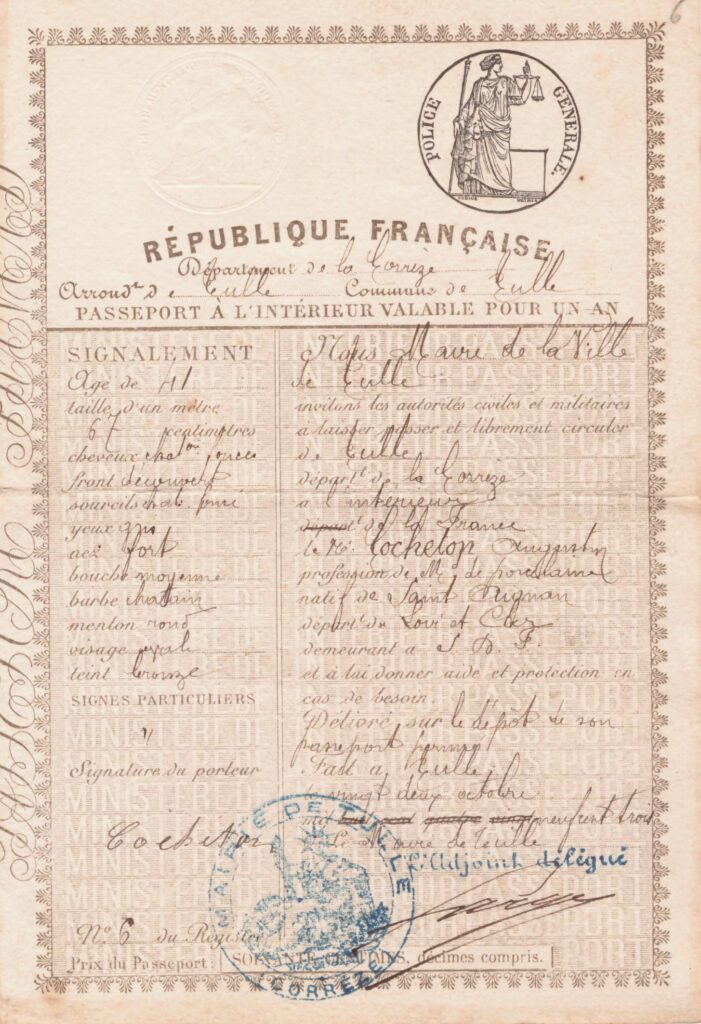 6
POLICE GÉNÉRALE.
RÉPUBLIQUE FRANÇAISE
Département de la Corrèze
Arrondt. de Tulle Commune de Tulle
PASSEPORT À L'INTÉRIEUR VALABLE POUR UN AN
SIGNALEMENT
Agé de 41
taille d'un mètre
67 centimètres
cheveux chat. foncé
front découvert
sourcils chat. foncé
yeux gris
nez fort
bouche moyenne
barbe chatain
menton rond
visage ovale
teint bronzé
SIGNES PARTICULIERS
"
Signature du porteur
Cocheton
Nous Maire de la Ville
de Tulle
invitons les autorités civiles et militaires
à laisser passer et librement circuler
de Tulle
départt. de la Corrèze
à l'intérieur
départ de la France
le Mr. Cocheton Augustin
profession de Md de porcelaine
natif de Saint Aignan
départt. du Loir et Cher
demeurant à S. D. F.
et à lui donner aide et protection en
cas de besoin.
Délivré sur le dépôt de son
passeport périmé
Fait à Tulle
vingt deux octobre
mil huit cent quatre vingt neuf cent trois
Le Maire de Tulle
L'Adjoint délégué
MAIRIE DE TULLE
(CORRÈZE)
No. 6 du Registre
Prix du Passeport: SOIXANTE CENTIMES, décimes compris.